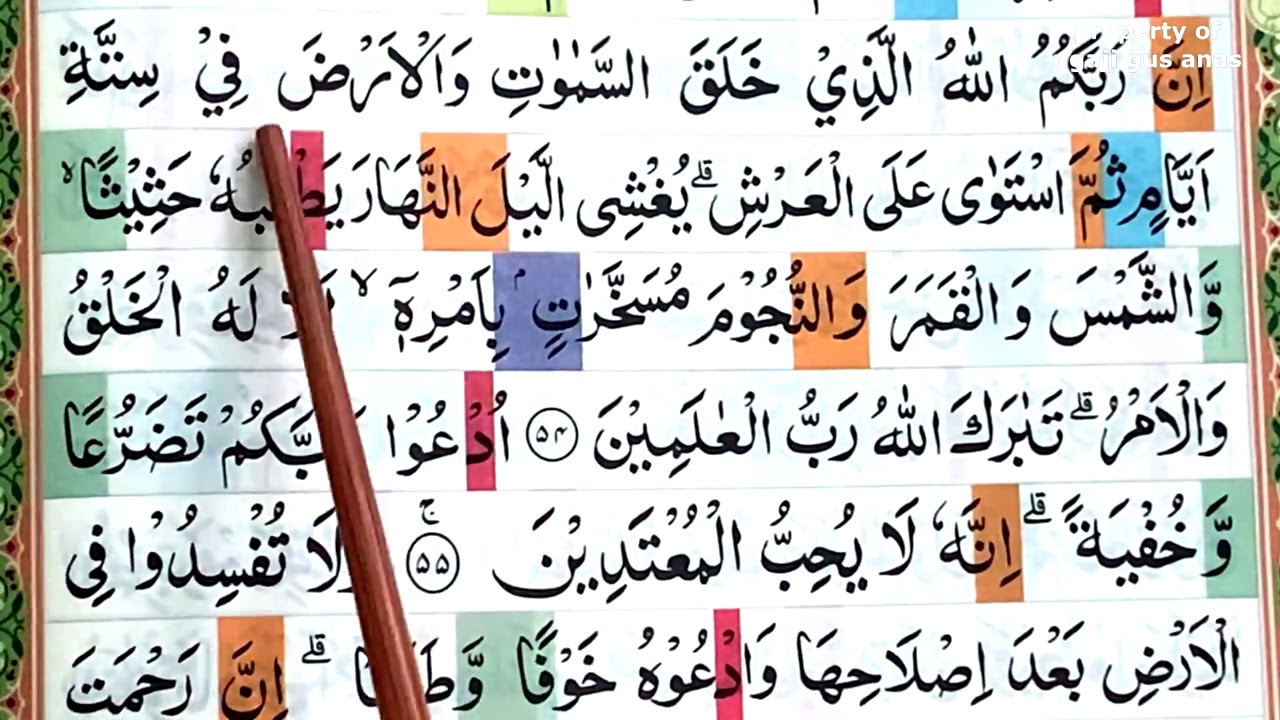 property of
ngaji gus anas
اِنَّ رَبَّكُمُ اللّٰهُ الَّذِيْ خَلَقَ السَّمٰوٰتِ وَالْاَرْضَ فِيْ سِتَّةِ
اَيَّامٍ ثُمَّ اسْتَوٰى عَلَى الْعَرْشِ ۗ يُغْشِى الَّيْلَ النَّهَارَ يَطْلُبُهٗ حَثِيْثًا ۙ
وَّالشَّمْسَ وَالْقَمَرَ وَالنُّجُوْمَ مُسَخَّرٰتٍ ۢ بِاَمْرِهٖٓ ۙ اَلَا لَهُ الْخَلْقُ
وَالْاَمْرُ ۗ تَبٰرَكَ اللّٰهُ رَبُّ الْعٰلَمِيْنَ ۝٥٤ اُدْعُوْا رَبَّكُمْ تَضَرُّعًا
وَّخُفْيَةً ۗ اِنَّهٗ لَا يُحِبُّ الْمُعْتَدِيْنَ ۚ ۝٥٥ وَلَا تُفْسِدُوْا فِى
الْاَرْضِ بَعْدَ اِصْلَاحِهَا وَادْعُوْهُ خَوْفًا وَّطَمَعًا ۗ اِنَّ رَحْمَتَ